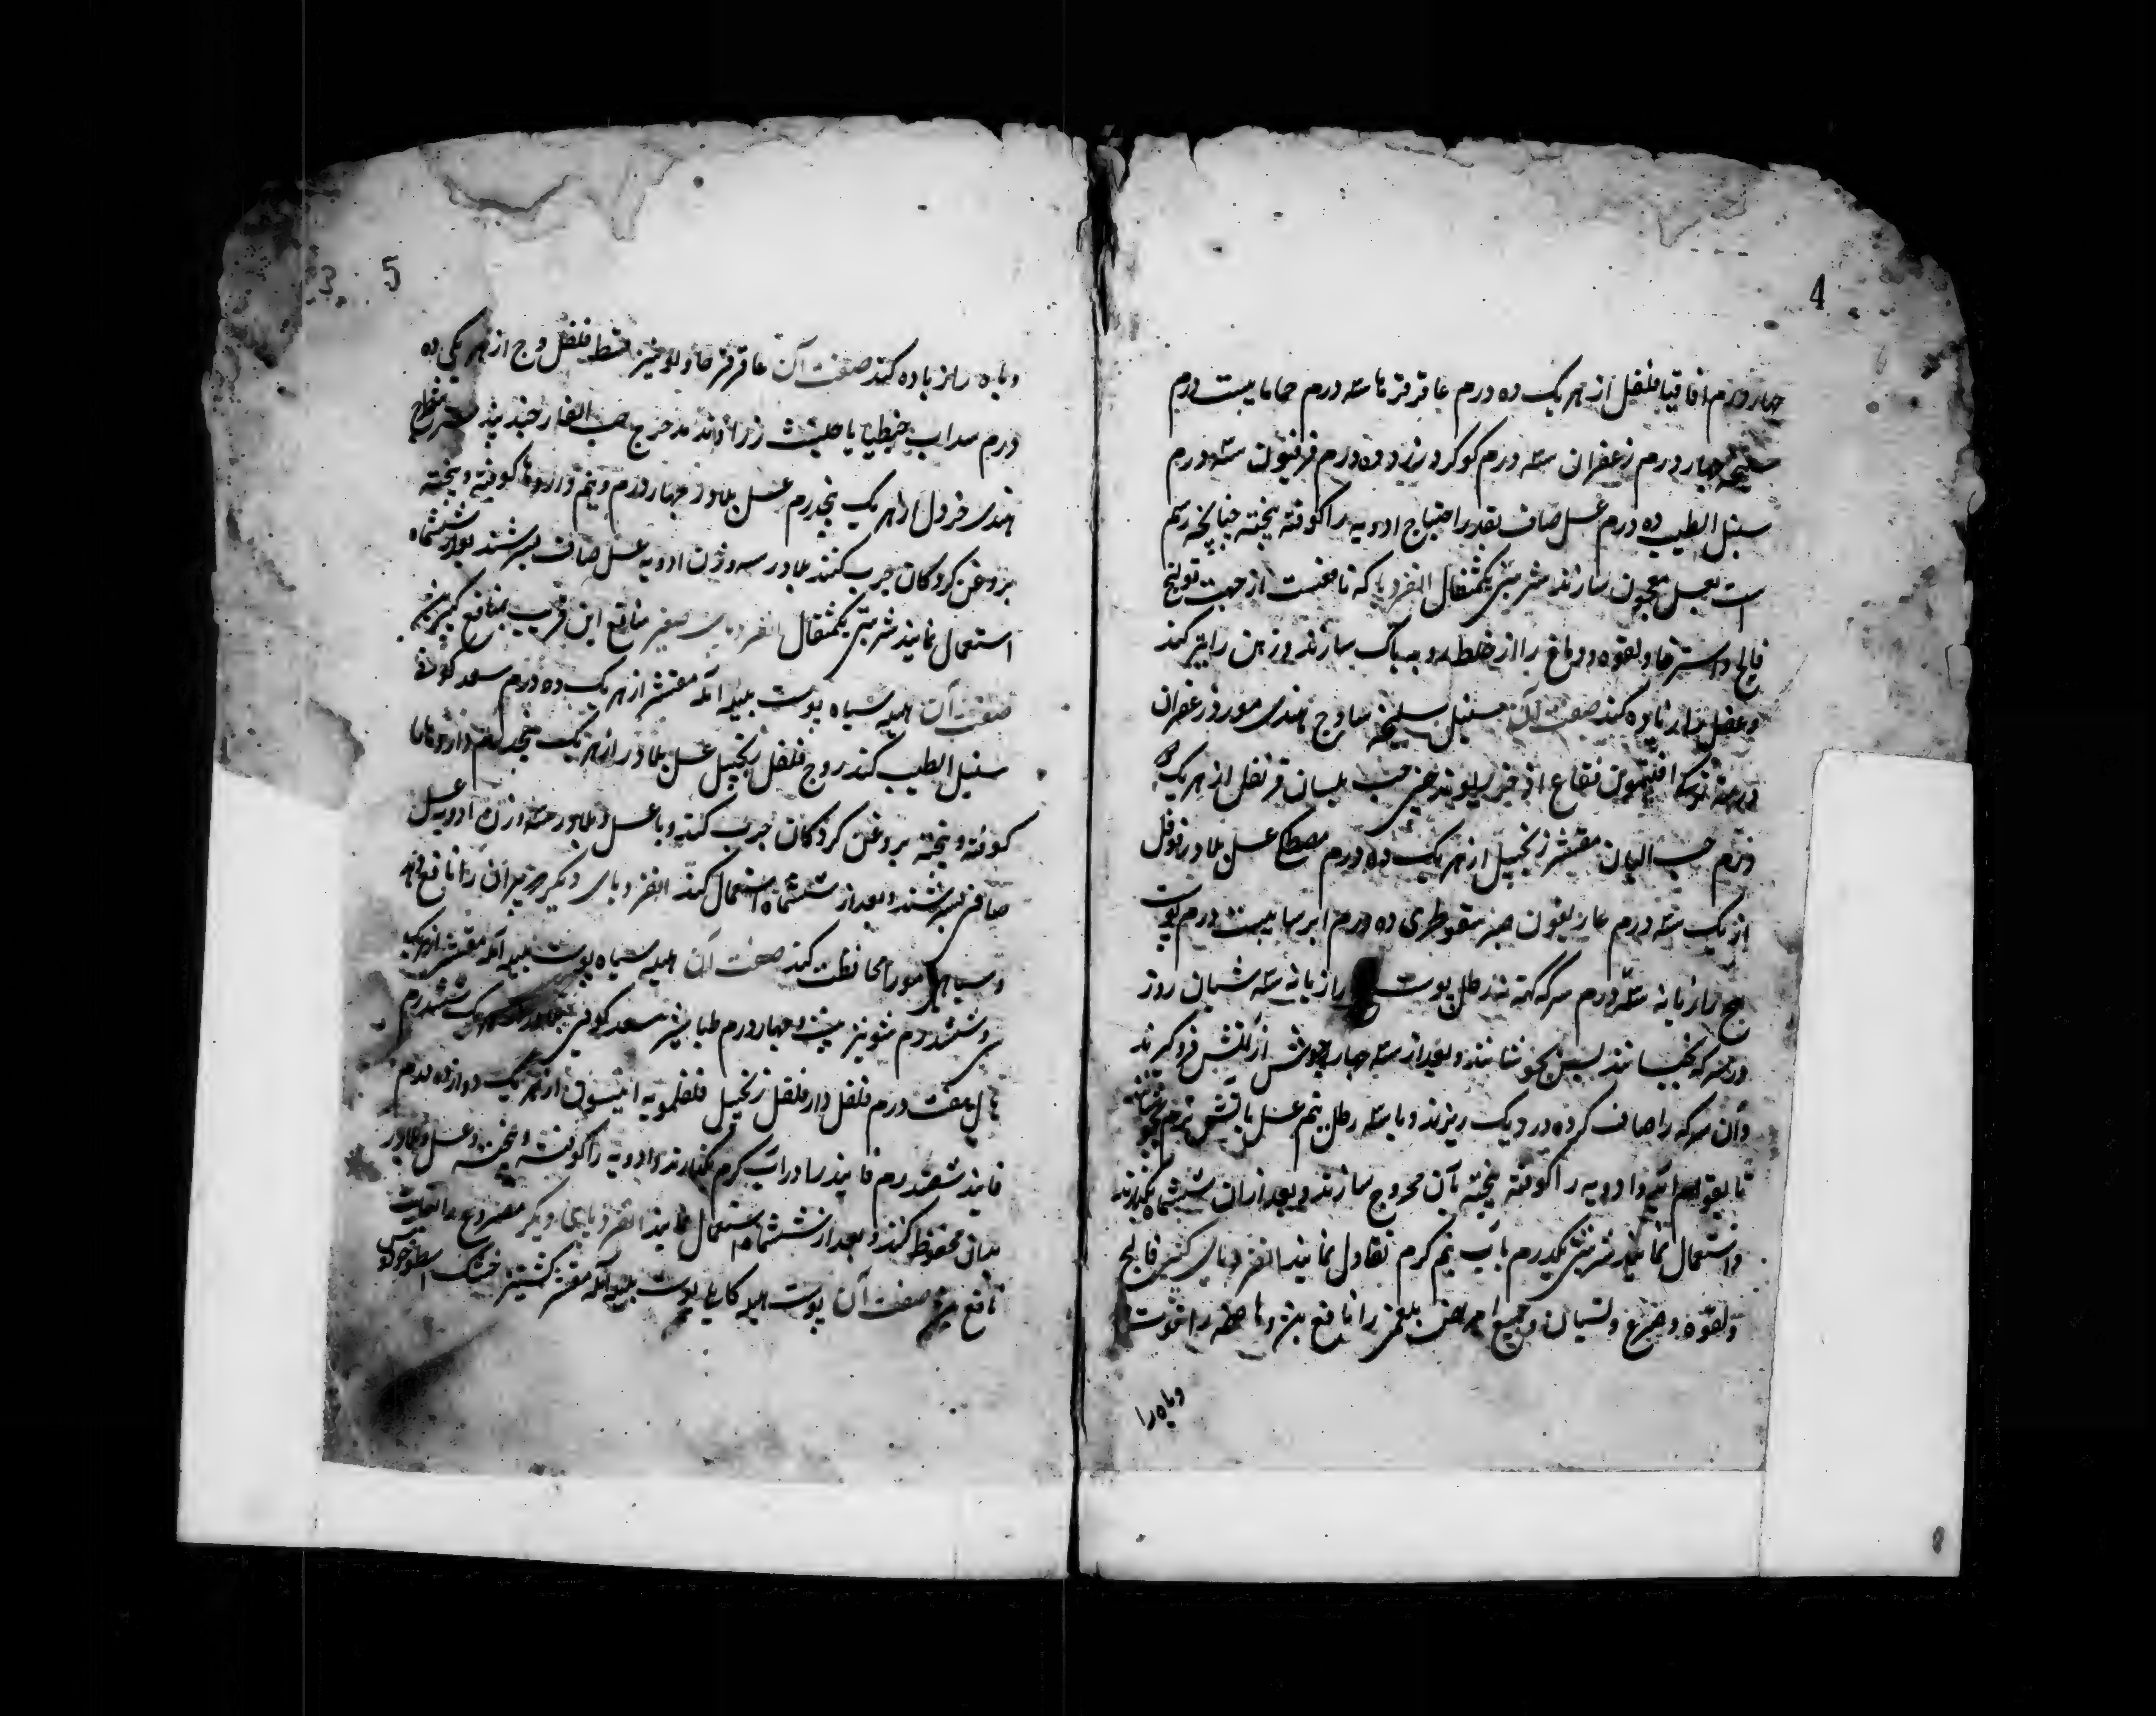 4
چهار درم اقاقیا فلفل از هر یک ده درم عاقرقرحا سه درم حماما بیست درم
سلیخه چهار درم زعفران سه درم کوکرد زرد ده درم فرفیون سه درم
سنبل الطیب ده درم عسل صاف بقدر احتیاج ادویه را کوفته بیخته چنانچه رسم
است بعسل معجون سازند شربتی یکمثقال انقردیا که نافعست از جهت قولنج
فالج و استرخا و لقوه و دماغ را از خلط رویه پاک سازند و ذهن را تیز کند
و عقل را زیاده کند صفت آن سنبل سلیخه ساوج هندی مو و زعفران
افتیمون فقاع اذخر ریوند چینی حب بلسان قرنفل از هر یک
درم حب البان مقشر زنجبیل از هر یک ده درم مصطکی عسل بلادر فوفل
از یک سه درم غاریقون صبر سقوطری ده درم ایرسا بیست درم پوست
بیخ رازیانه سه درم سرکه کهنه نه رطل پوست رازیانه سه شبان روز
در سرکه بخیسانند پس بجوشانند و بعد از سه چهار جوش از آتش فرو گیرند
و آن سرکه را صاف کرده در دیک ریزند و با سه رطل نیم عسل باتش نرم بجوشانند
تا بقوام آید و ادویه را کوفته بیخته بآن ممزوج سازند و بعد از آن ششماه بگذارند
و استعمال نمایند شربتی یکدرم بآب نیم کرم تناول نمایند انقردیای کبیر فالج
و لقوه و صرع و نسیان و جمیع امراض بلغمی را نافع بود و هاضمه را قوت
و باه را
5
و باه را زیاده کند صفت آن عاقرقرحا و شونیز قسط فلفل وج از هر یکی ده
درم سداب جنطیانا حلتیت زراوند مدحرج حب الغار جندبیدستر
هندی خردل از هر یک پنجدرم عسل بلادر چهار درم و نیم داروها کوفته و بیخته
بروغن کردکان چرب کنند بلادر سه وزن ادویه عسل صاف بسرشند بعد از ششماه
استعمال نمایند شربتی یکمثقال انقردیای صغیر منافع این قریب بمنافع کبیر
صفت آن هلیله سیاه پوست بلیله آمله مقشر از هر یک ده درم سعد کوفی
سنبل الطیب کندر وج فلفل زنجبیل عسل بلادر از هر یک پنجدرم داروها
کوفته و بیخته بروغن کردکان چرب کنند و با عسل و بلادر سه وزن ادویه عسل
صافی بسرشند و بعد از ششماه استعمال کنند انقردیای دیگر پیران را نافع
و سیاهی مو را محافظت کند صفت آن هلیله سیاه پوست بلیله آمله مقشر از هر یک
سی و ششدرم شونیز بیست و چهار درم طباشیر سعد کوفی ششدرم
هیل هفت درم فلفل دار فلفل زنجبیل فلفلمویه انیسون از هر یک دوازده درم
فانید شصت درم فانید را در آب کرم بگذارند و ادویه را کوفته و بیخته و عسل و بلادر
بدان مخلوط کنند و بعد از ششماه استعمال نمایند انقردیای دیگر مصروع را بغایت
نافع بود صفت آن پوست هلیله کابلی پوست بلیله آمله مقشر کشنیز خشک اسطوخودوس